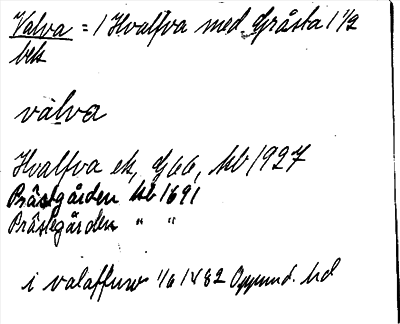 Valva = 1 Hvalfva med Gråsta 1 1/2
bek
valva
Hvalfva ek, G66, kb 1927
Prästgården kb 1691
Prästegården " "
i valaffuw 1/6 1482 Uppund. hd